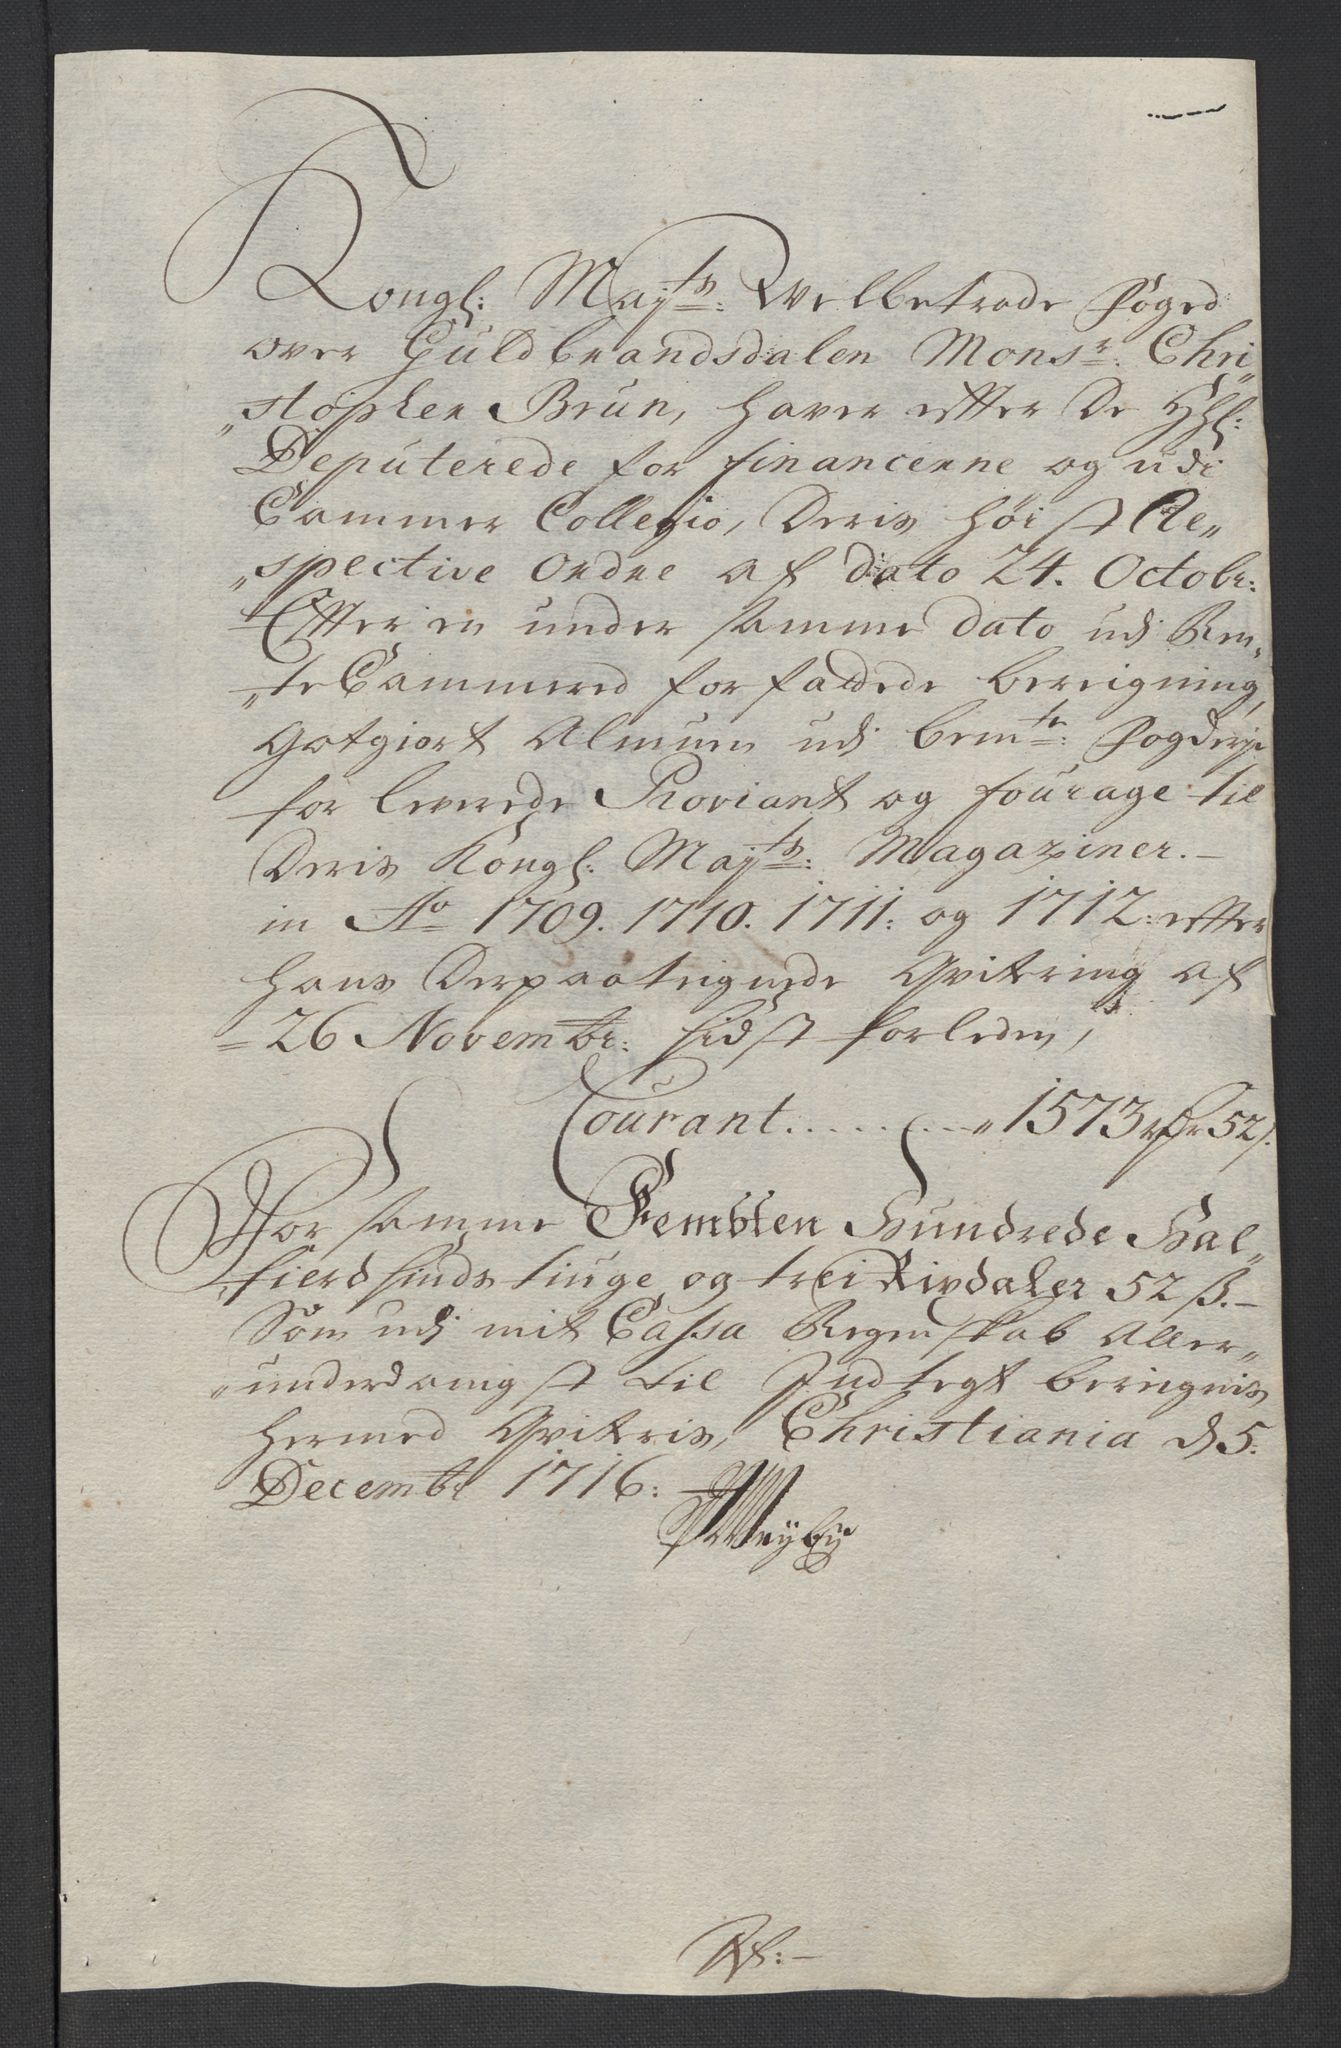 Kongl: May<sup>ts</sup>: Welbetrode Foged
over Guldbrandsdalen Mons<sup>r</sup>: Chri„
„stopher Brun, haver effter De HHl:
Deputerede for financerne og udi
Cammer Collegio, Deris høist Re„
„spective Ordre af dato 24. Octobr:
Effter en under samme dato udj Ren„
„te Cammered forfattede beregning,
Gotgiort Almuen udj bem<sup>te</sup>: Fogderje
for leverede Proviant og fourage til
Deris Kongl: May<sup>ts</sup>: Magaziner. –
in Ao 1709. 1710. 1711: og 1712: effter
hans Derpaa teignede Qvitering af
26 Novembr: sidst forleden,
Courant . . . . . . . . . „ 1573 rdr 52 s.
For samme Fembten Hundrede Hal„
„fierdsinds tiuge og trei Rixdaler 52 ß. –
Som udj mit Cassa Regenskab Aller„
„underdanigst til Indtegt beregnis
hermed Qviteris, Christiania d 5.
Decembr 1716: